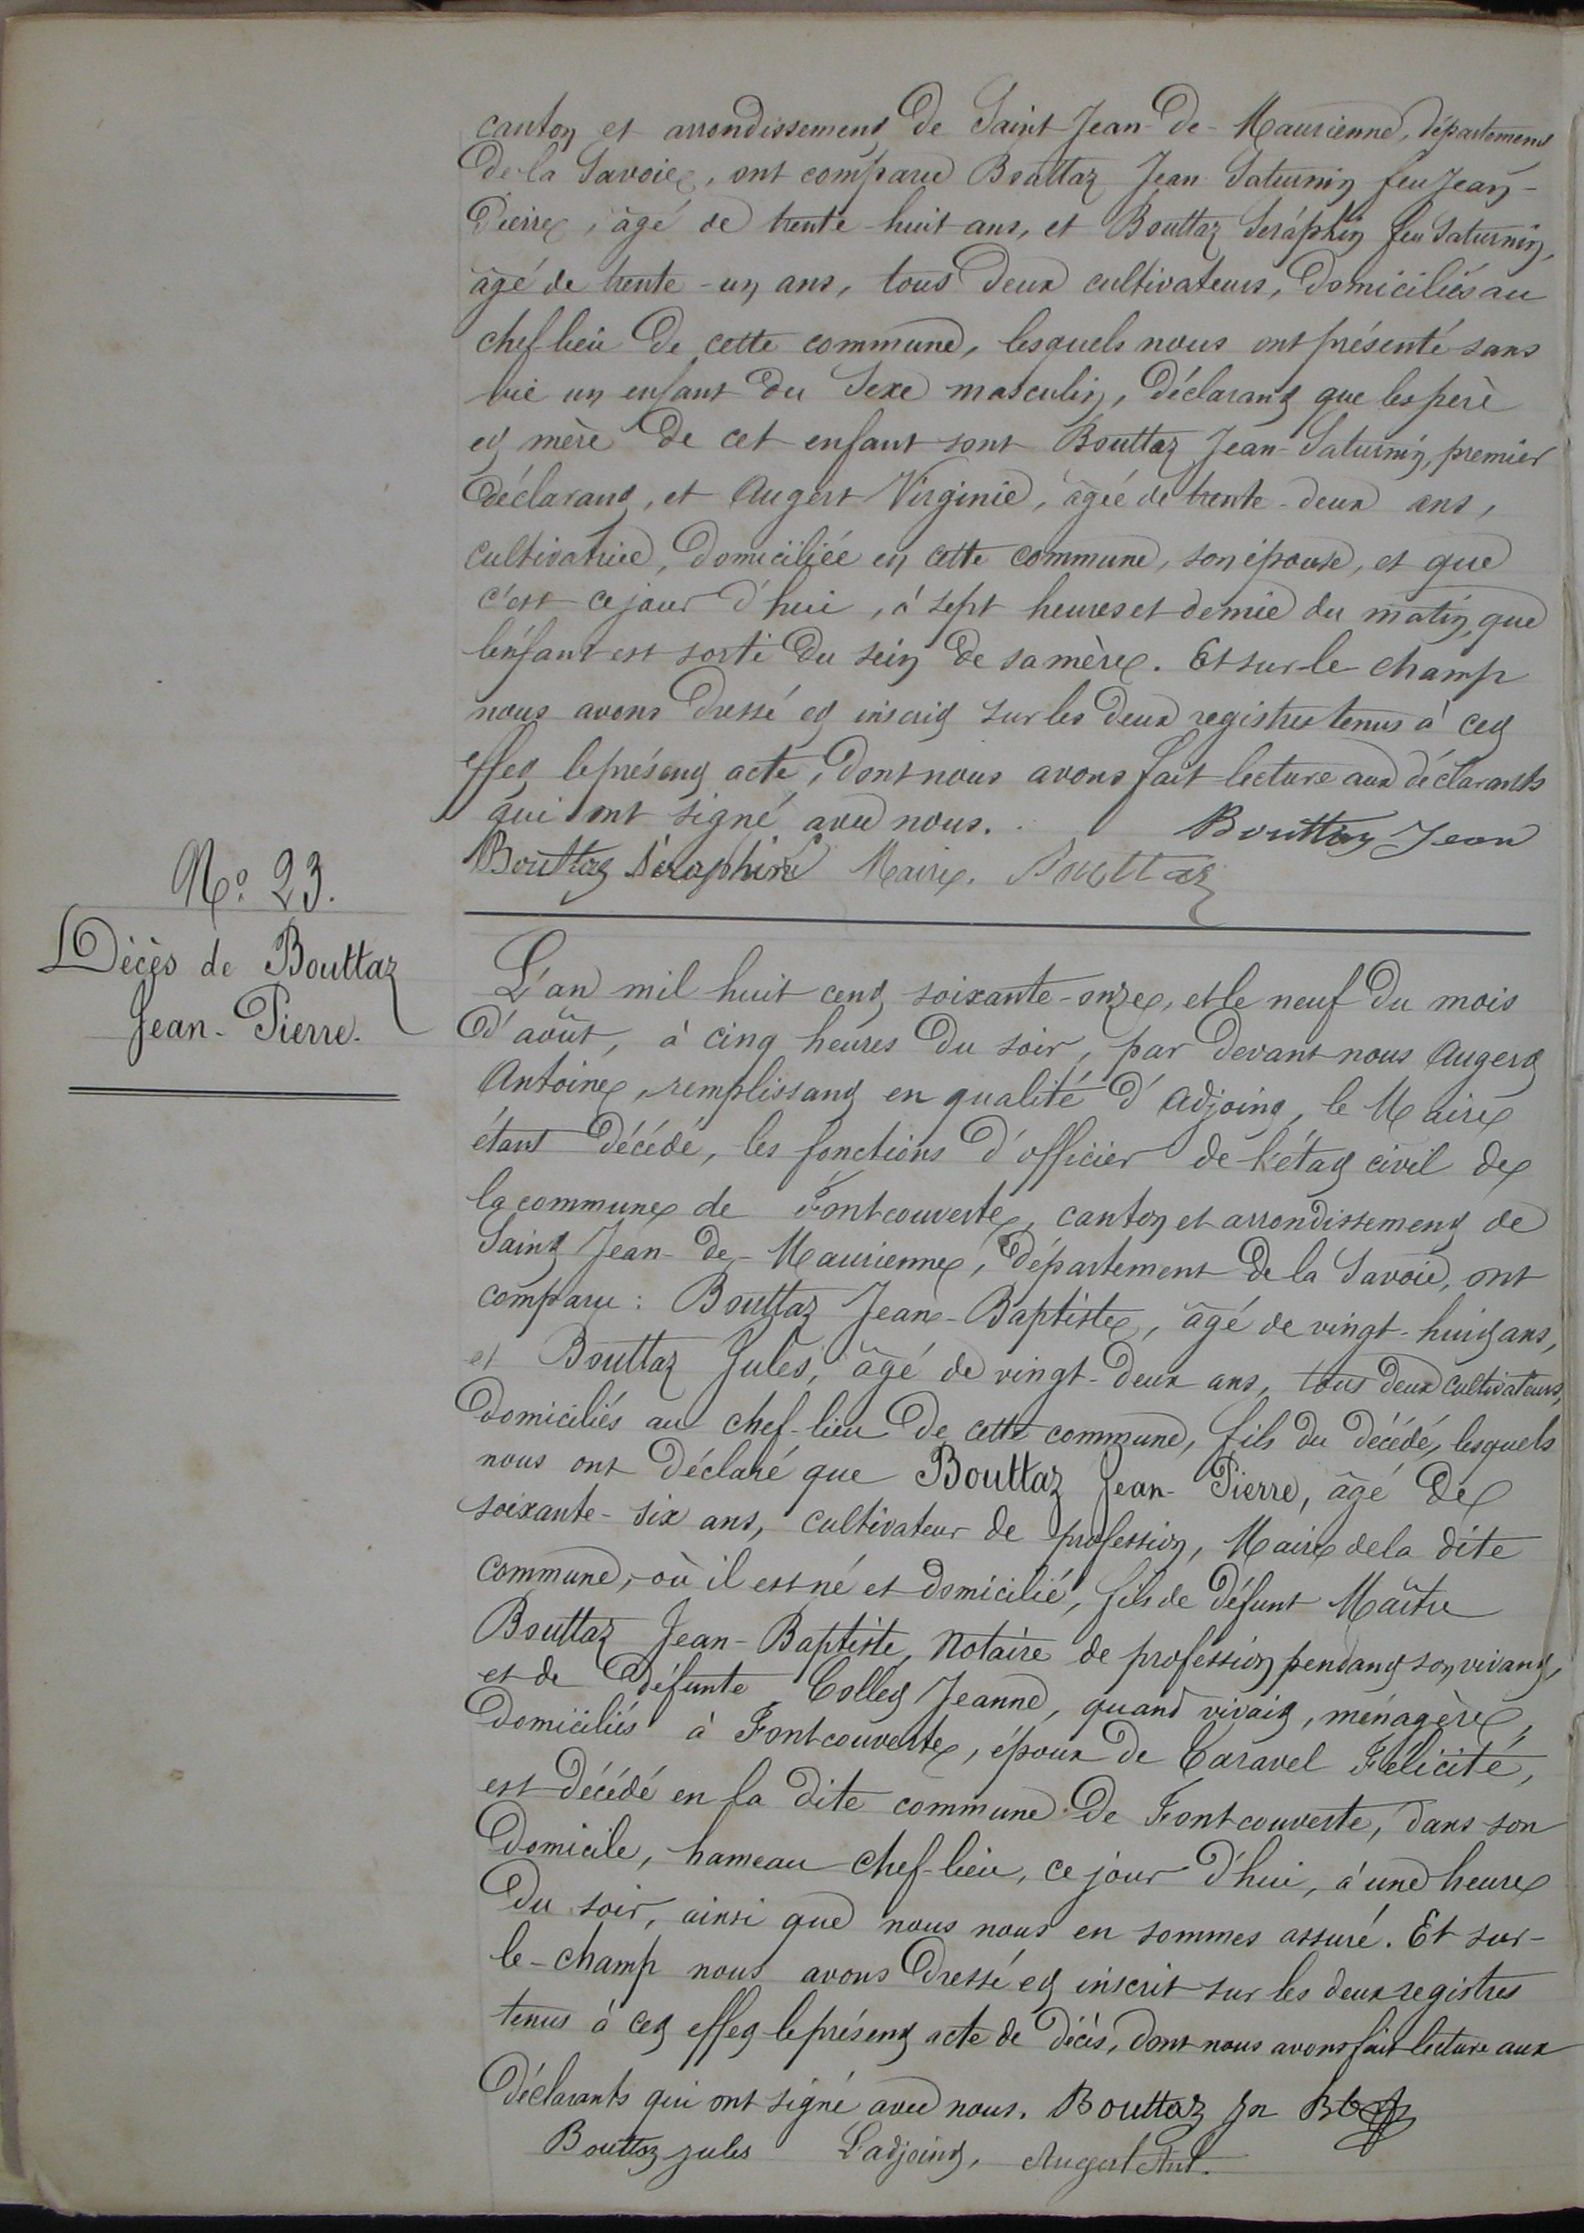 canton et arrondissement de Saint Jean-de-Maurienne, département
de la Savoie, ont comparu Bouttaz Jean Saturnin feu Jean-
Pierre, âgé de trente-huit ans, et Bouttaz Séraphin feu Saturnin,
âgé de trente-un ans, tous deux cultivateurs, domiciliés au
chef-lieu de cette commune, lesquels nous ont présenté sans
vie un enfant du Sexe masculin, déclarant que les père
et mère de cet enfant sont Bouttaz Jean-Saturnin, premier
déclarant, et Augert Virginie, âgée de trente-deux ans,
cultivatrice, domiciliée en cette commune, son épouse, et que
c'est ce jour d'hui, à sept heures et demie du matin, que
l'enfant est sorti du sein de sa mère. Et sur-le champ
nous avons dressé et inscrit sur les deux registres tenus à cet
effet le présent acte, dont nous avons fait lecture aux déclarants
qui ont signé avec nous. Bouttaz Jean
Bouttaz Séraphin Maire. Bouttaz
N.º 23.
Décès de Bouttaz
Jean-Pierre.
L'an mil huit cent soixante-onze, et le neuf du mois
d'août, à cinq heures du soir, par devant nous Augert
Antoine, remplissant en qualité d'adjoint, le Maire
étant décédé, les fonctions d'officier de l'état civil de
la commune de Fontcouverte, canton et arrondissement de
Saint Jean-de-Maurienne, département de la Savoie, ont
comparu: Bouttaz Jean-Baptiste, âgé de vingt-huit ans,
et Bouttaz Jules, âgé de vingt-deux ans, tous deux cultivateurs,
domiciliés au chef-lieu de cette commune, fils du décédé, lesquels
nous ont déclaré que Bouttaz Jean-Pierre, âgé de
soixante-six ans, cultivateur de profession, Maire de la dite
commune, où il est né et domicilié, fils de défunt Maître
Bouttaz Jean-Baptiste, Notaire de profession pendant son vivant,
et de défunte Collet Jeanne, quand vivait, ménagère,
domiciliés à Fontcouverte, époux de Caravel Félicité,
est décédé en la dite commune de Fontcouverte, dans son
domicile, hameau chef-lieu, ce jour d'hui, à une heure
du soir, ainsi que nous nous en sommes assuré. Et sur-
le-champ nous avons dressé et inscrit sur les deux registres
tenus à cet effet le présent acte de décès, dont nous avons fait lecture aux
déclarants qui ont signé avec nous. Bouttaz Jn Bte
Bouttaz jules L'adjoint, Augert Ant.